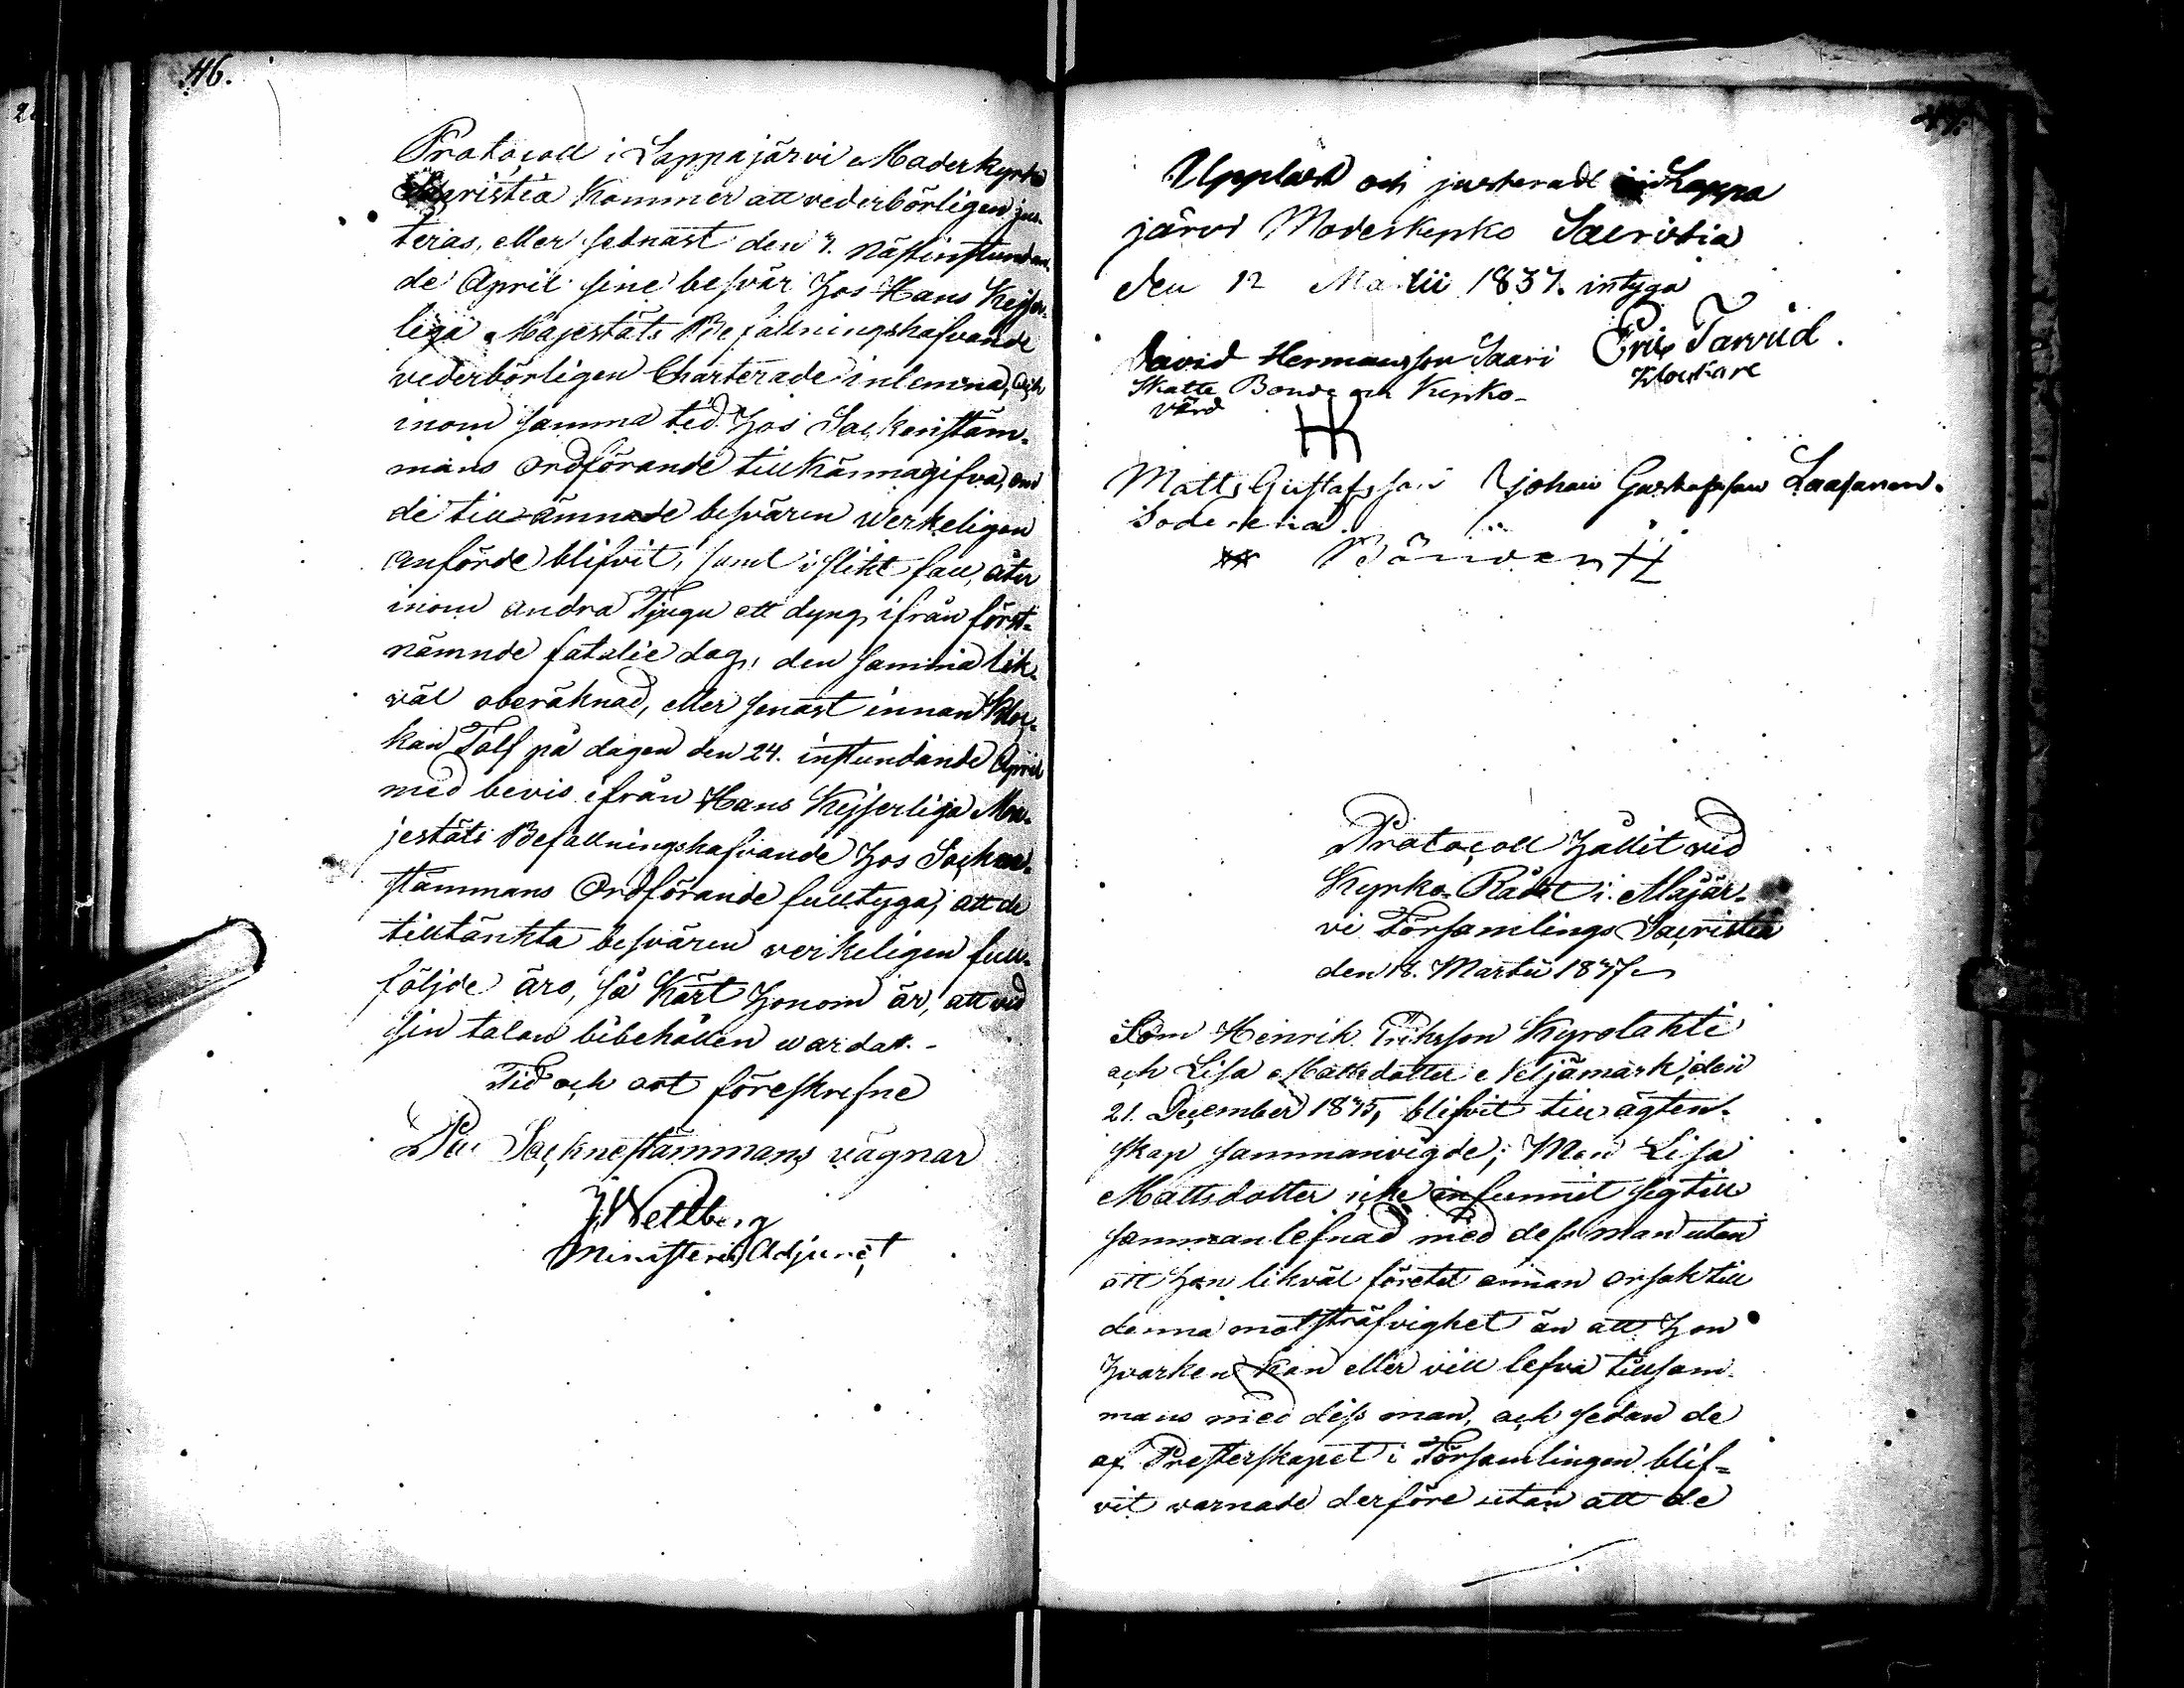 46.
Protocoll i Lappajärvi Moderkyrko
Sacristia kommer att vederbörligen jus-
teras, eller sednast den 7. nästinstundan-
de April sine besvär hos Hans Kejser-
liga Majestäts Befallningshafvande
vederbörligen Charterade inlemna, och
inom samma tid hos Sockenstäm-
mans Ordförande tillkännagifva, om
de tillämnade besvären werkeligen
anförde blifvit, samt i slikt fall, åter
inom andra Tjugu ett dygn, ifrån först-
nämnde fatalie dag, den samma lik-
väl oberäknad, eller senast innan Kloc-
kan Tolf på dagen den 24. instundande April
med bevis ifrån Hans Kejserliga Ma-
jestäts Befallningshafvande hos Socken-
stämmans Ordförande fulltyga, att de
tilltänkta besvären verkeligen full-
följde äro, så kärt honom är, att vid
sin talan bibehållen warda. -
Tid och ort föreskrefne
På Socknestämmans vägnar
J. Wettberg
Ministerii Adjunct
47.
Uppläst och justeradt i Lappa
järvi Moderkyrko Sacristia
den 12 Martii 1837. intyga
David Hermansson Saari Eric Tarvud.
Skatte Bonde och Kyrko- Klockare
värd
HK
Matts Gustafsson Johan Gustafsson Laasanen.
Söderena
Bönder
Protocoll hållit vid
Kyrko-Rådet i Alajär-
vi Församlings Sacristia
den 18. Martii 1837
Som Henrik Eriksson Kyrolahti
och Lisa Mattsdotter Neljämark, den
21. December 1835, blifvit till ägten-
skap sammanvigde; Men Lisa
Mattsdotter icke infunnit sig till
sammanlefnad med dess man utan
att hon likväl företet annan orsak till
denna motsträfvighet än att hon
hvarken kan eller vill lefva tillsam-
mans med dess man, och sedan de
af Presterskapet i Församlingen blif-
vit varnade derföre utan att de